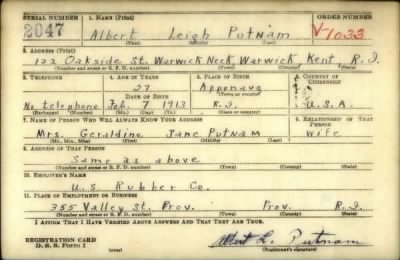 SERIAL NUMBER 1. NAME (Print) ORDER NUMBER
2047 Albert Leigh Putnam V-1033
(First) (Middle) (Last)
2. ADDRESS (Print)
122 Oakside St. Warwick Neck, Warwick Kent R.I.
(Number and street or R. F. D. number) (Town) (County) (State)
3. TELEPHONE 4. AGE IN YEARS 5. PLACE OF BIRTH 6. COUNTRY OF CITIZENSHIP
27 Apponaug
DATE OF BIRTH (Town or county)
No telephone Feb. 7 1913 R.I. U.S.A.
(Exchange) (Number) (Mo.) (Day) (Yr.) (State or country)
7. NAME OF PERSON WHO WILL ALWAYS KNOW YOUR ADDRESS 8. RELATIONSHIP OF THAT PERSON
Mrs. Geraldine Jane Putnam wife
(Mr., Mrs., Miss) (First) (Middle) (Last)
9. ADDRESS OF THAT PERSON
Same as above
(Number and street or R. F. D. number) (Town) (County) (State)
10. EMPLOYER'S NAME
U.S. Rubber Co.
11. PLACE OF EMPLOYMENT OR BUSINESS
355 Valley St. Prov. Prov. R.I.
(Number and street or R. F. D. number) (Town) (County) (State)
I AFFIRM THAT I HAVE VERIFIED ABOVE ANSWERS AND THAT THEY ARE TRUE.
REGISTRATION CARD
D. S. S. FORM 1 (over) Albert L. Putnam
(Registrant's signature)